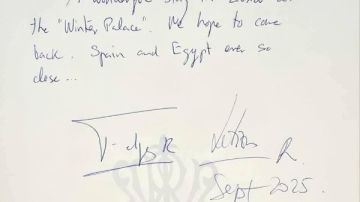 A wonderful stay in Luxor at
the "Winter Palace". We hope to come
back. Spain and Egypt ever so
close...
R
Letizia R.
Sept 2025.